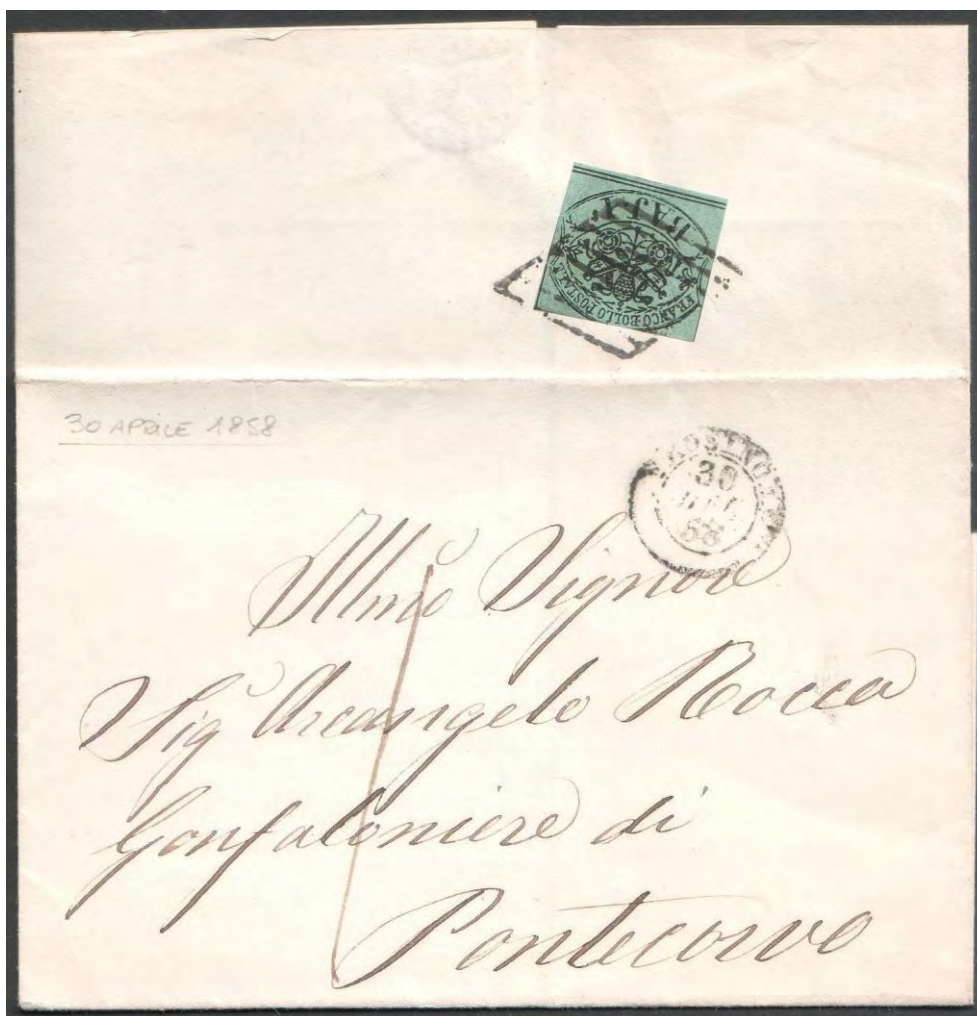 BAJ 1
FRANCO BOLLO POSTALE
30 APRILE 1858
FROSINONE
30
58
Illmo Signore
Sig Arcangelo Rocca
Gonfaloniere di
Pontecorvo